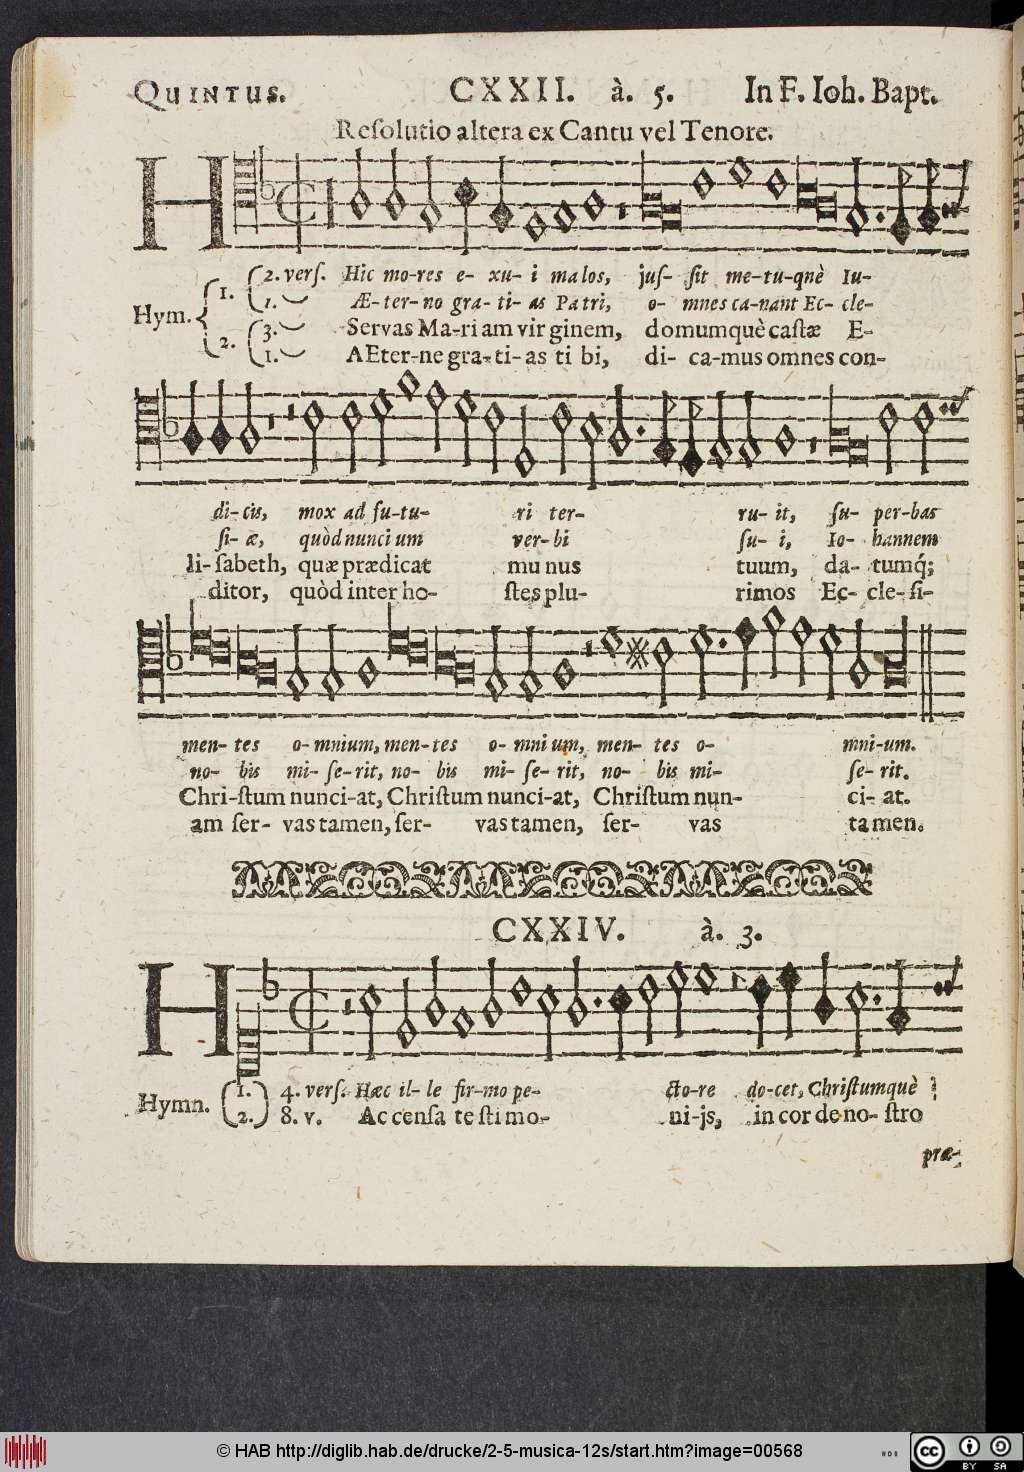 QUINTUS. CXXII. à. 5. In F. Ioh. Bapt.
Resolutio altera ex Cantu vel Tenore.
H
2. vers. Hic mo-res e- xu- i malos, jus- sit me-tu-què Iu-
1. Æ-ter-no gra-ti-as Patri, o- mnes ca-nant Ec-cle-
Hym. 1. 2.
3. Servas Ma-ri am vir ginem, domumquè castæ E-
1. AEter-ne gra-ti-as ti bi, di- ca-mus omnes con-
di-cis, mox ad fu-tu- ri ter- ru-it, su- per-bas
si- æ, quòd nunci um ver-bi su- i, Io- hannem
li-sabeth, quæ prædicat mu nus tuum, da- tumq́;
ditor, quòd inter ho- stes plu- rimos Ec- cle-si-
men-tes o-mnium, men-tes o- mni um, men- tes o- mni-um.
no- bis mi-se-rit, no- bis mi- se-rit, no- bis mi- se-rit.
Chri-stum nunci-at, Christum nunci-at, Christum nun- ci- at.
am ser- vas tamen, ser- vas tamen, ser- vas ta men.
CXXIV. à. 3.
H
Hymn. 1. 4. vers. Hæc il-le fir-mo pe- cto-re do-cet, Christumquè
2. 8. v. Ac censa te sti mo- ni-js, in cor de no-stro
præ-
© HAB http://diglib.hab.de/drucke/2-5-musica-12s/start.htm?image=00568
cc BY SA